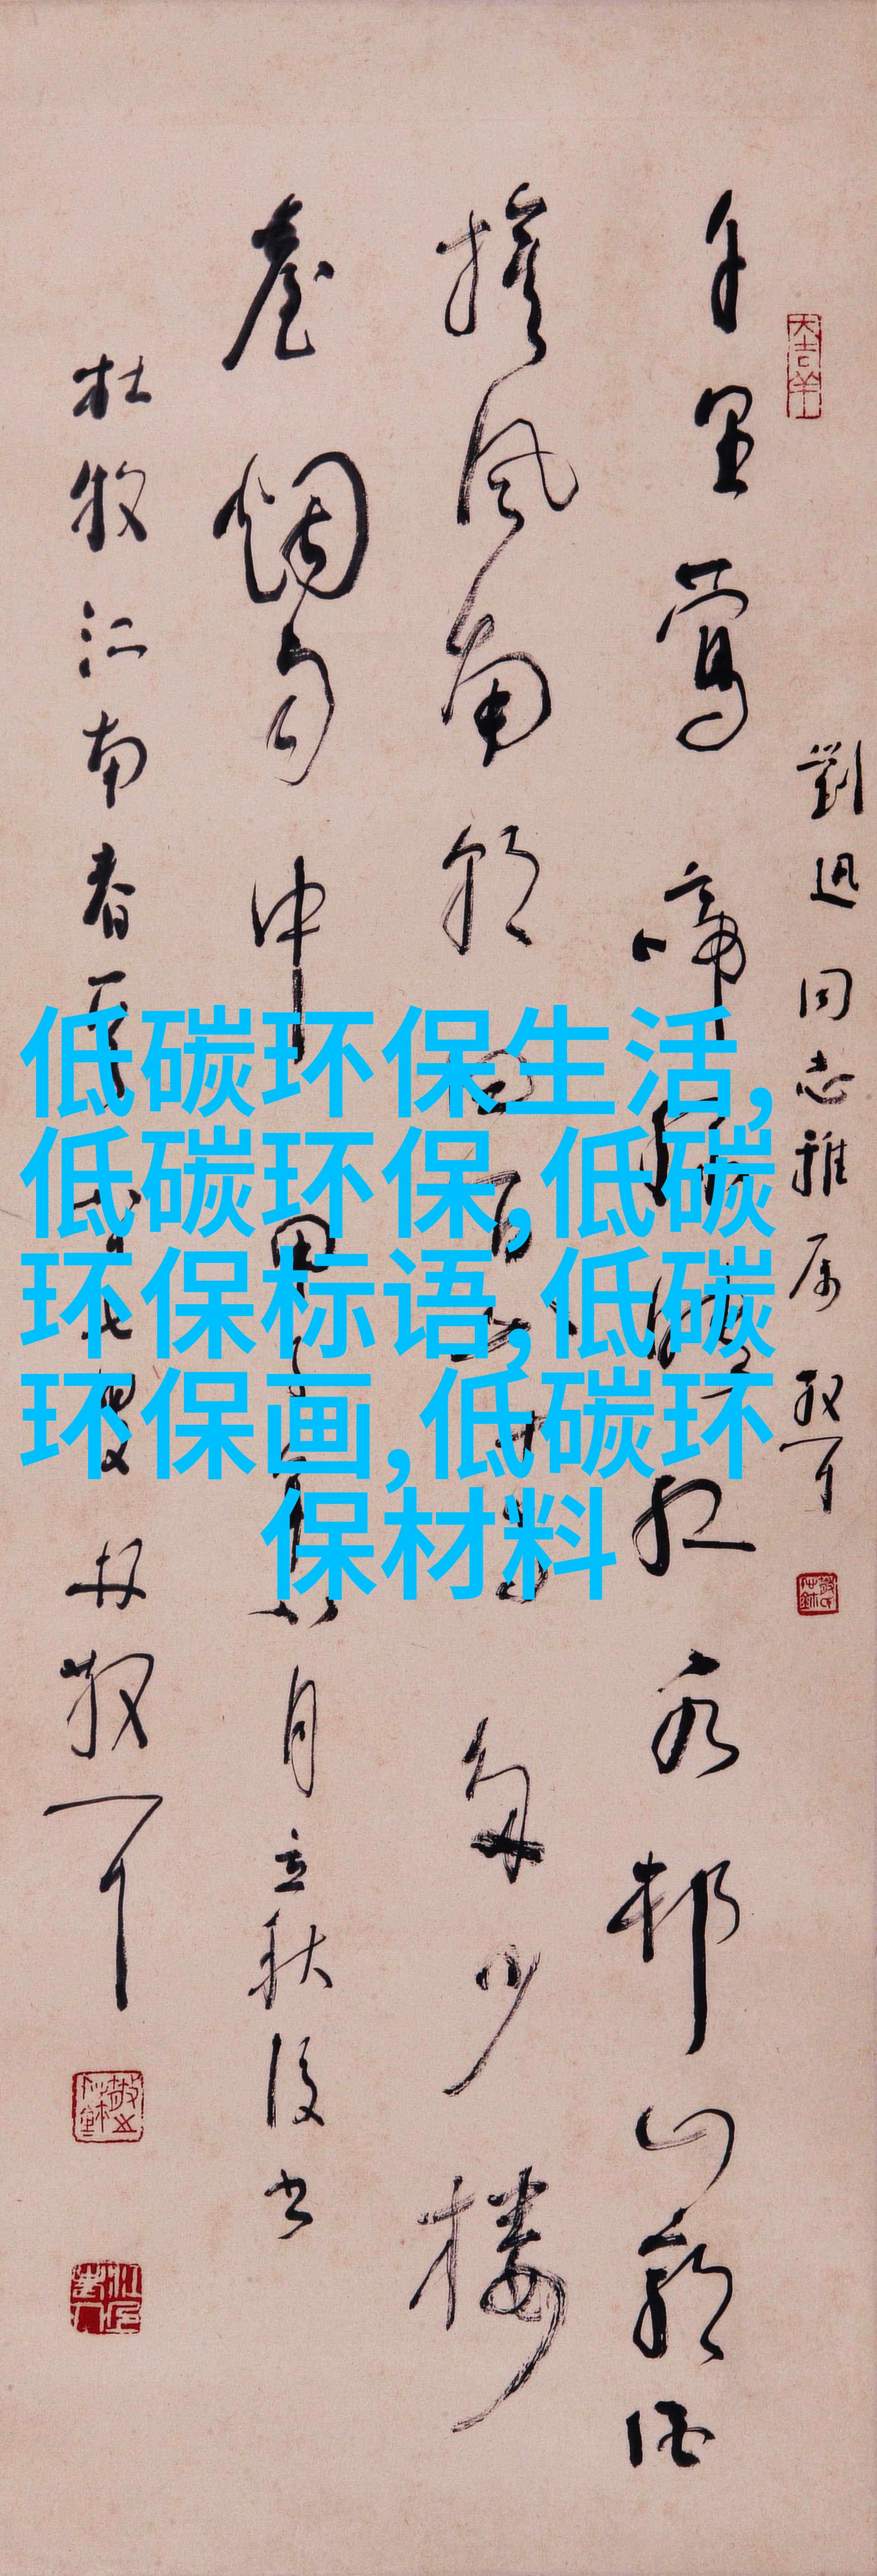 劉迅同志雅属 散耳
千里莺啼绿映红水村山郭酒
旗风南朝四百八十寺多少楼
臺烟雨中 甲子年八月立秋後书
杜牧江南春一首 林散耳
低碳环保生活,
低碳环保,低碳
环保标语,低碳
环保画,低碳环
保材料